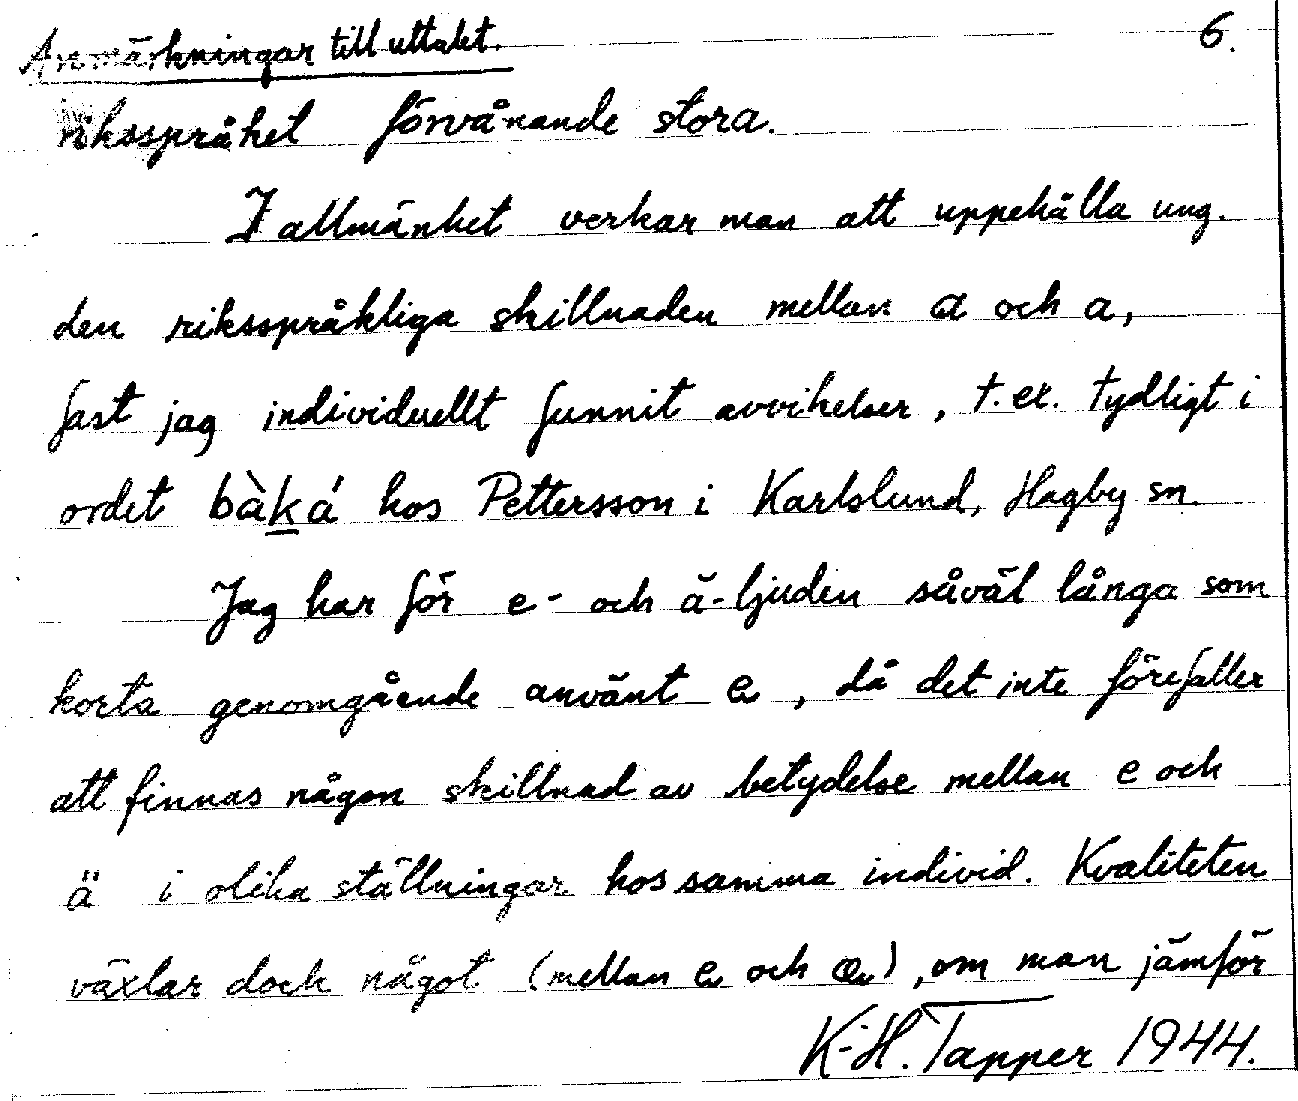 Anmärkningar till uttalet. 6.
riksspråket förvånande stora.
I allmänhet verkar man att uppehålla ung.
den riksspråkliga skillnaden mellan ɑ och a,
fast jag individuellt funnit avvikelser, t. ex. tydligt i
ordet bàká hos Pettersson i Karlslund, Hagby sn.
Jag har för e- och ä-ljuden såväl långa som
korta genomgående använt e, då det inte förefaller
att finnas någon skillnad av betydelse mellan e och
ä i olika ställningar hos samma individ. Kvaliteten
växlar dock något (mellan e och æ), om man jämför
K-H. Tapper 1944.